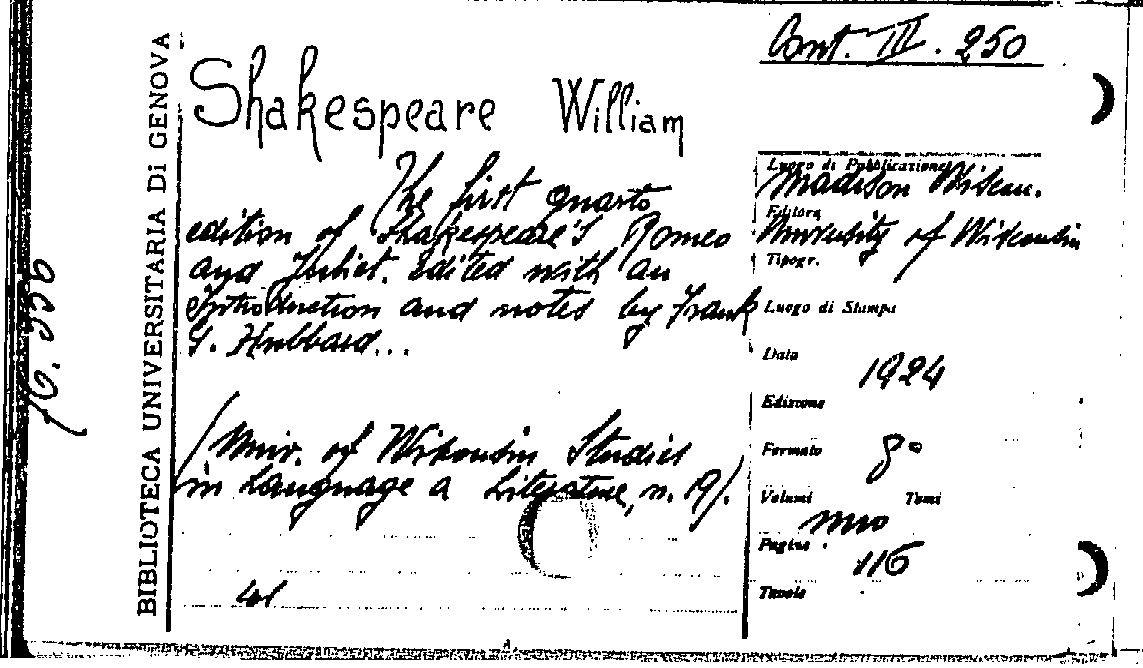 Cont. III. 250
Shakespeare William
The first quarto
edition of Shakespeare's Romeo
and Juliet. Edited with an
Introduction and notes by Frank
G. Hubbard...
(Univ. of Wisconsin Studies
in Language a Literature, n. 19).
BIBLIOTECA UNIVERSITARIA DI GENOVA
Luogo di Pubblicazione
Madison Wiscun.
Editore
University of Wisconsin
Tipogr.
Luogo di Stampa
Data
1924
Edizione
Formato 8°
Volumi Tomi
uno
Pagine
116
Tavole